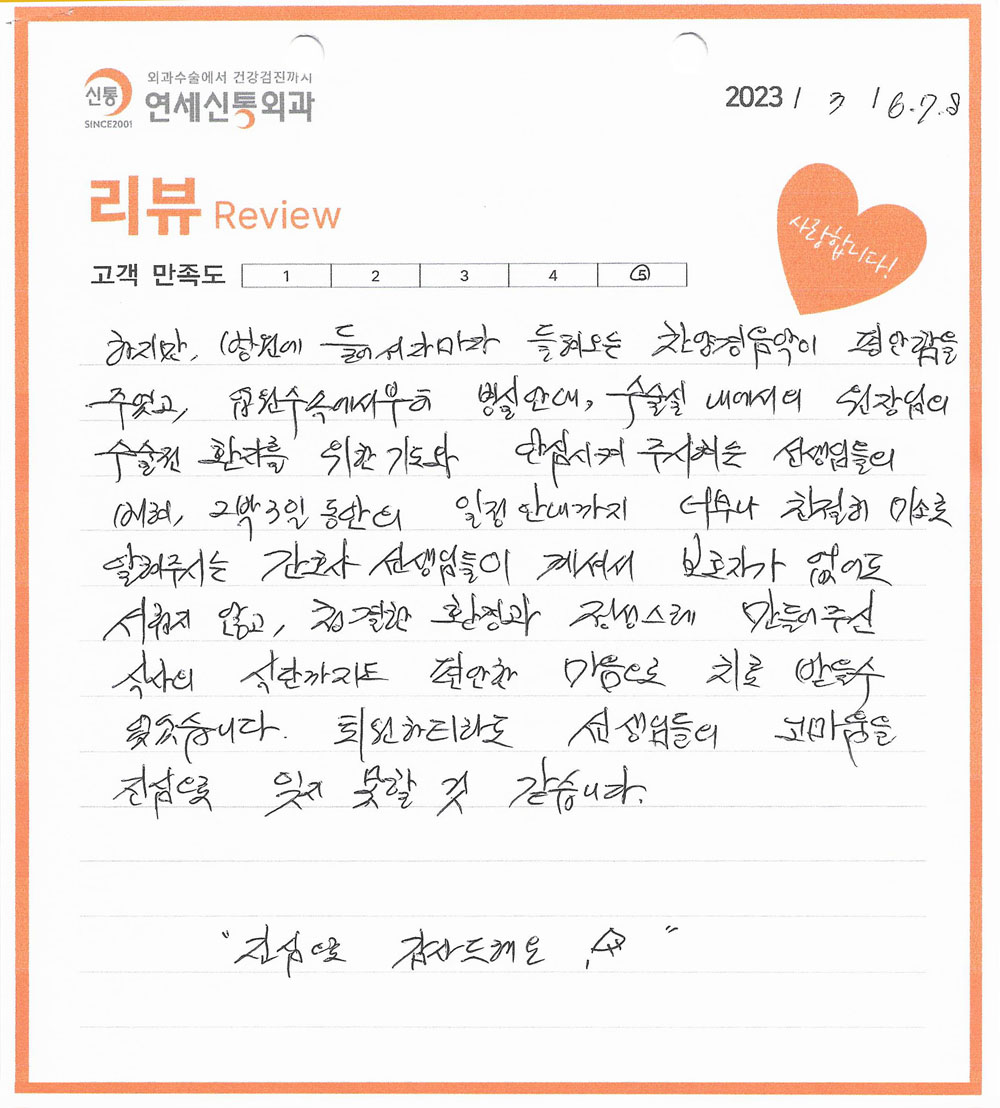 외과수술에서 건강검진까지
신통 연세신통외과
SINCE2001
2023 / 3 / 6.7.8
리뷰 Review
사랑합니다!
고객 만족도 1 2 3 4 5
하지만, 병원에 들어서자마자 들려오는 찬양경음악이 평안함을
주었고, 입원수속에서부터 병실안내, 수술실 내에서의 원장님의
수술전 환자를 위한 기도와 안심시켜 주시려는 선생님들의
배려, 2박3일 동안의 일정 안내까지 너무나 친절히 미소로
알려주시는 간호사 선생님들이 계셔서 보호자가 없어도
서럽지 않고, 청결한 환경과 정성스레 만들어주신
식사의 식단까지도 편안한 마음으로 치료 받을수
있었습니다. 퇴원하더라도 선생님들의 고마움을
진심으로 잊지 못할 것 같습니다.
"진심으로 감사드려요 "